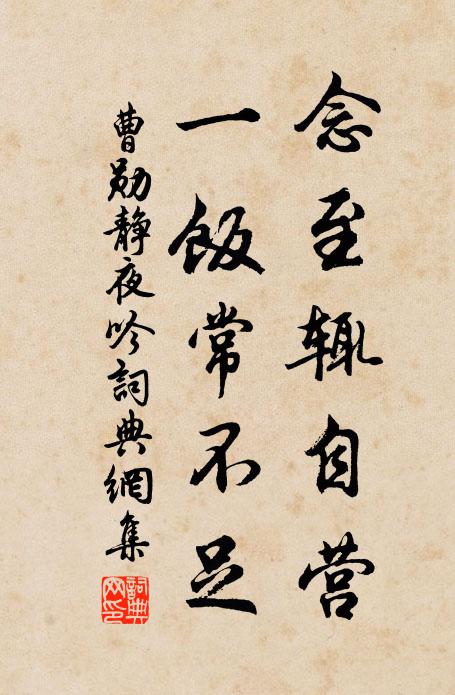 念至辄自营
一饭常不足
曹勋静夜吟詞典網集
詞典网印